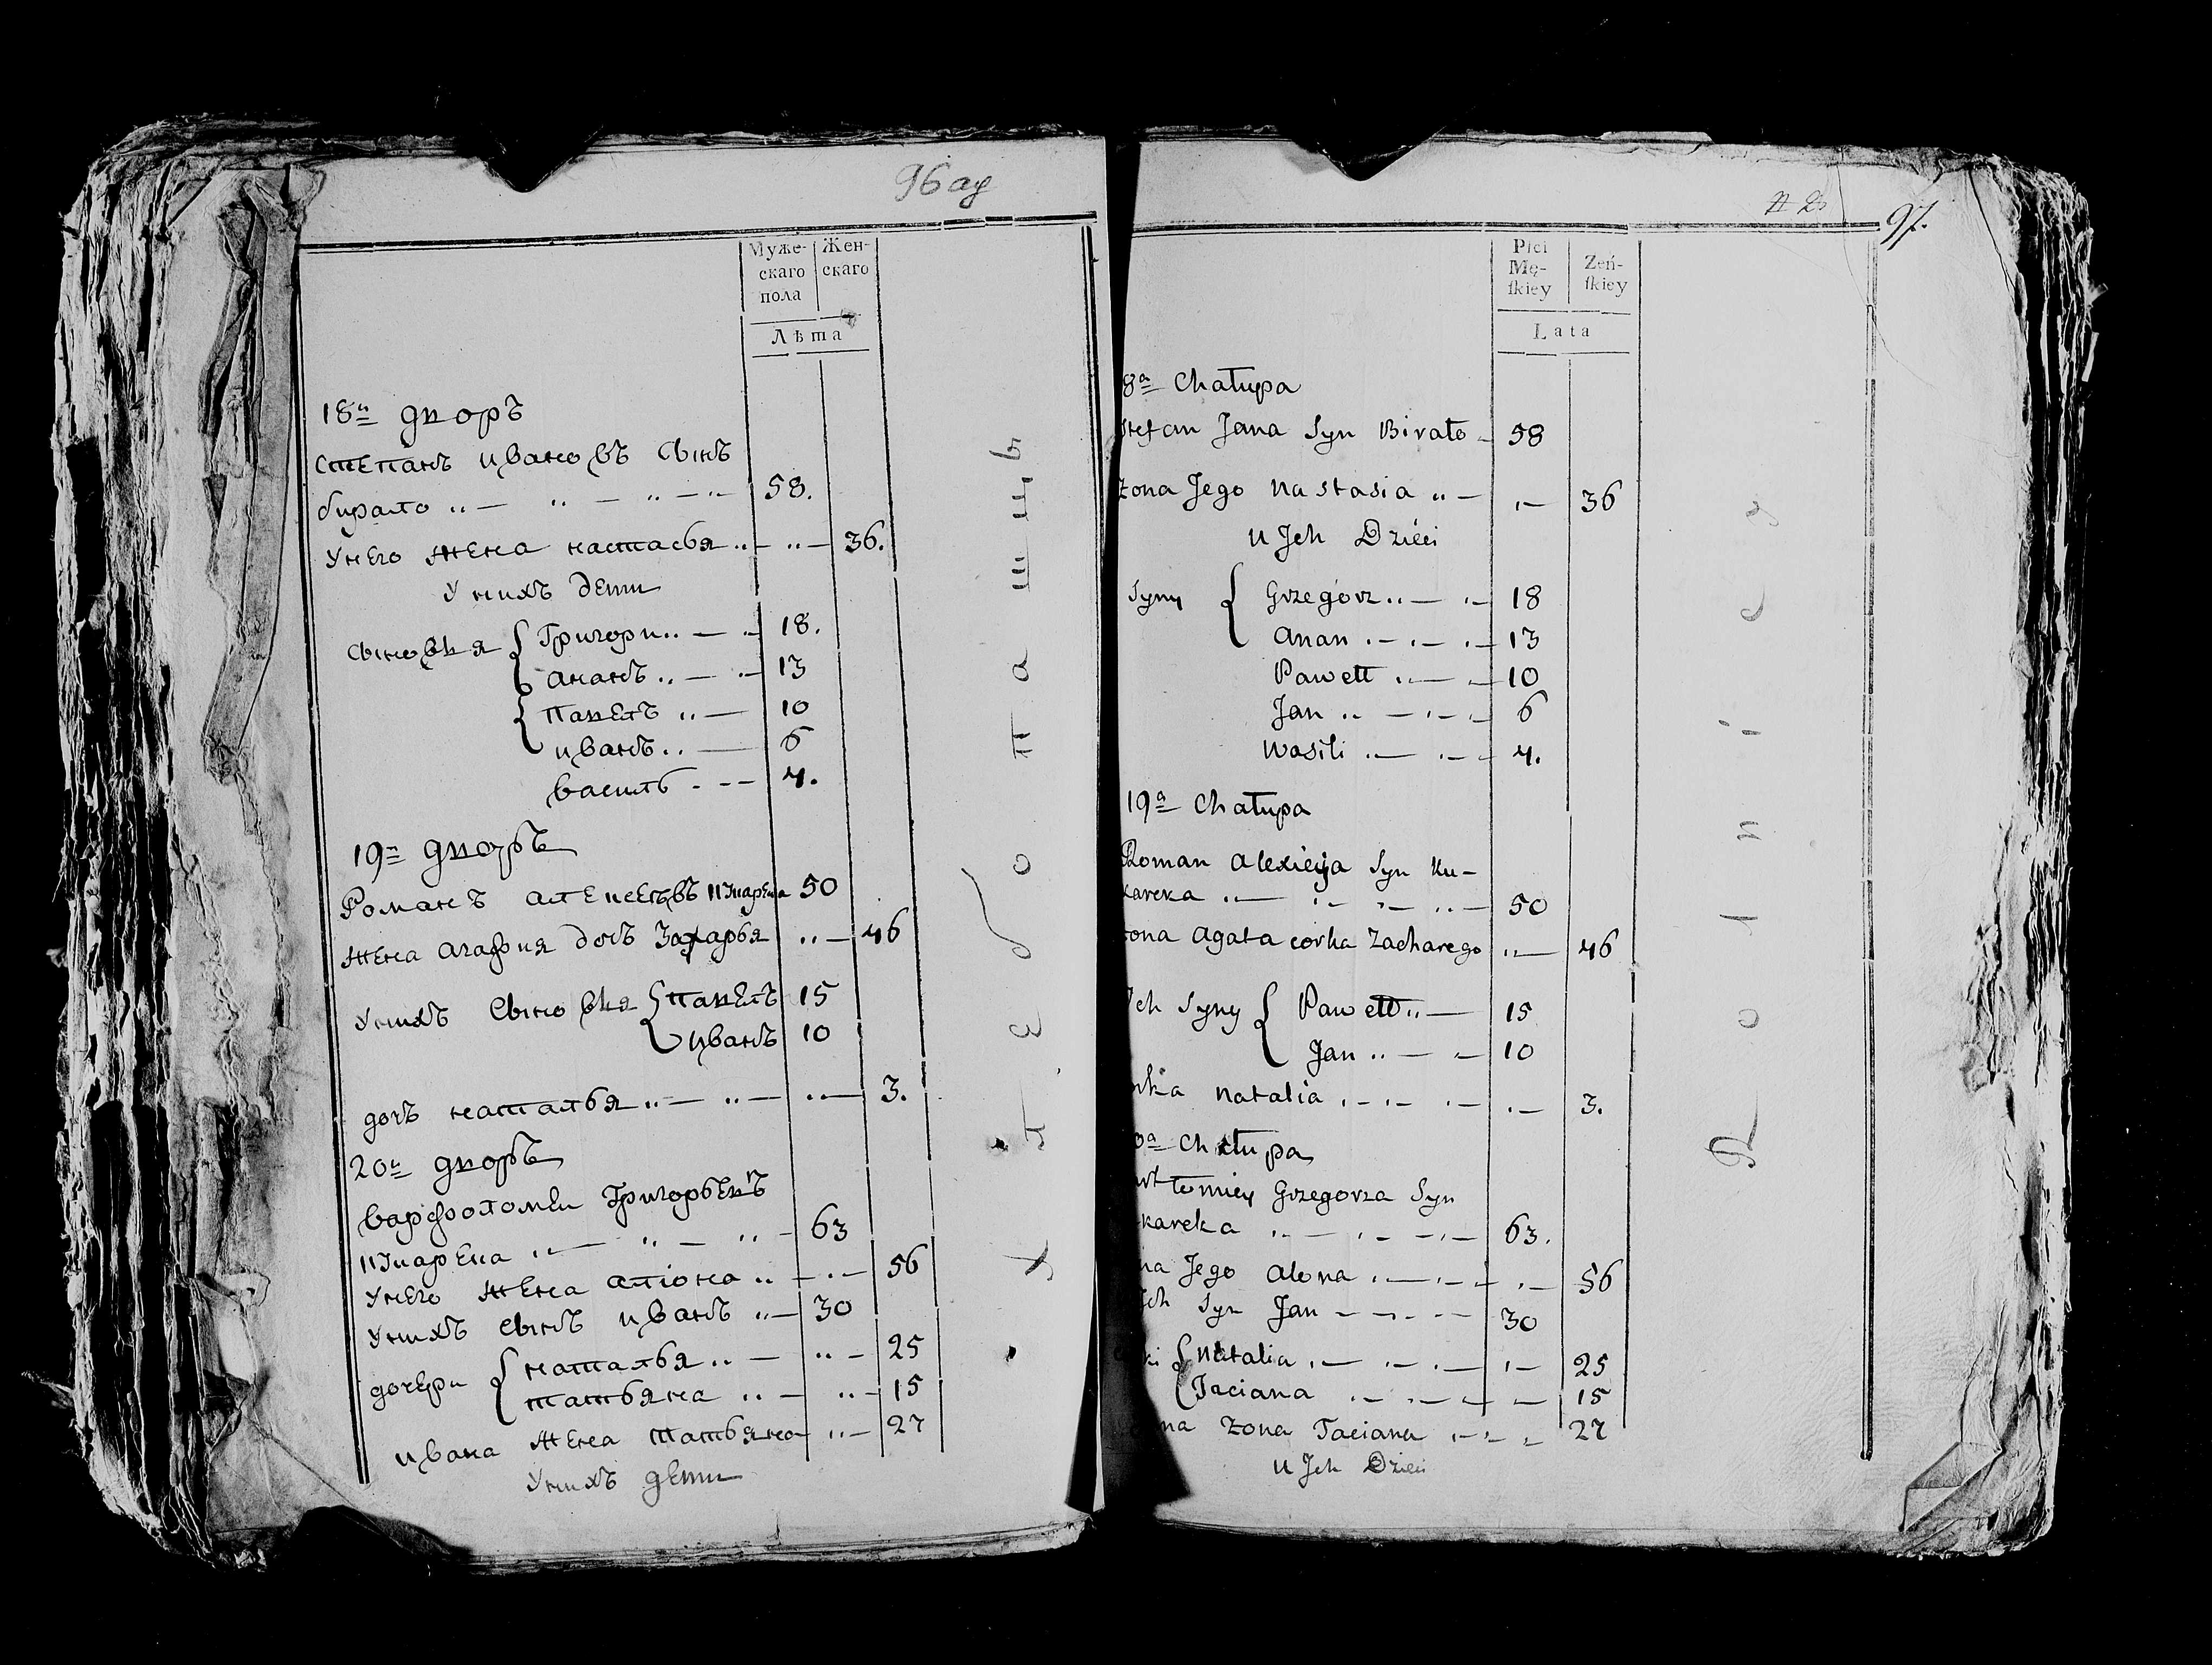 96 аѳ
Муже-
скаго
пола
Жен-
скаго
Лѣта
18й дворъ
степанъ ивановъ сынъ
бирало 58.
унего жена настасья 36.
унихъ дети
сыновья Григори 18.
ананъ 13
павелъ 10
иванъ 6
василь 4.
19й дворъ
Романъ алексеевъ 50
жена агафия дочь Захарья 46
унихъ сыновья павелъ 15
иванъ 10
дочь наталья 3.
20й дворъ
варфоломеи Григорьевъ
63
унего жена алiона 56
унихъ сынъ иванъ 30
дочери наталья 25
татьяна 15
ивана жена татьяна 27
унихъ дети
Хлебопашцъ
97.
Płci
Mę-
ſkiey
Żeń-
ſkiey
Lata
8a Chałupa
Stefan Jana Syn Birało 58
żona Jego Nastasia 36
u Jch Dzieci
Syny Grzegorz 18
Anan 13
Pawełł 10
Jan 6
Wasili 4.
19a Chałupa
Roman Alexieja Syn Ku-
kareka 50
żona Agata corka Zacharego 46
Jch Syny Pawełł 15
Jan 10
rka Natalia 3.
0a Chałupa
rtłomiey Grzegorza Syn
kareka 63.
na Jego Alona 56
Jch Syn Jan 30
ki Natalia 25
Taciana 15
na żona Taciana 27
u Jch Dzieci
Rolnicy